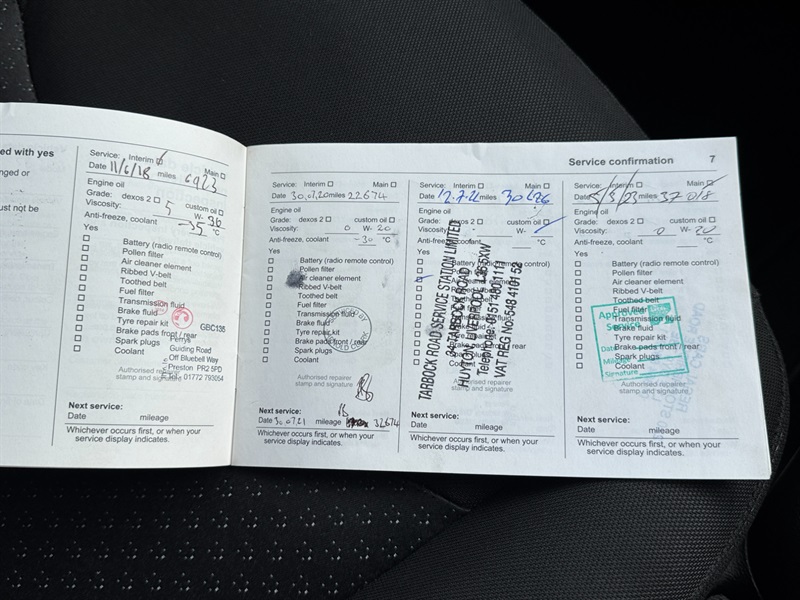 ed with yes
nged or
ust not be
Service: Interim Main
Date 11/6/18 miles 6923
Engine oil
Grade: dexos 2 custom oil
Viscosity: 5 W- 30
Anti-freeze, coolant -35 °C
Yes
Battery (radio remote control)
Pollen filter
Air cleaner element
Ribbed V-belt
Toothed belt
Fuel filter
Transmission fluid
Brake fluid
Tyre repair kit
Brake pads front / rear
Spark plugs
Coolant
GBC136
Perrys
Guiding Road
Off Bluebell Way
Preston PR2 5PD
01772 793054
Authorised repairer
stamp and signature
Next service:
Date mileage
Whichever occurs first, or when your
service display indicates.
Service confirmation 7
Service: Interim Main
Date 30.07.20 miles 22674
Engine oil
Grade: dexos 2 custom oil
Viscosity: 0 W- 20
Anti-freeze, coolant -30 °C
Yes
Battery (radio remote control)
Pollen filter
Air cleaner element
Ribbed V-belt
Toothed belt
Fuel filter
Transmission fluid
Brake fluid
Tyre repair kit
Brake pads front / rear
Spark plugs
Coolant
Authorised repairer
stamp and signature
Next service:
Date 30.07.21 mileage 32674
Whichever occurs first, or when your
service display indicates.
Service: Interim Main
Date miles
Engine oil
Grade: dexos 2 custom oil
Viscosity: W-
Anti-freeze, coolant °C
Yes
Battery (radio remote control)
TARBOCK ROAD SERVICE STATION LIMITED
34 TARBOCK ROAD
HUYTON, LIVERPOOL L36 5XW
VAT REG No: 548 4101 52
Authorised repairer
stamp and signature
Next service:
Date mileage
Whichever occurs first, or when your
service display indicates.
Service: Interim Main
Date miles 37018
Engine oil
Grade: dexos 2 custom oil
Viscosity: 0 W- 20
Anti-freeze, coolant °C
Yes
Battery (radio remote control)
Pollen filter
Air cleaner element
Ribbed V-belt
Toothed belt
Fuel filter
Transmission fluid
Brake fluid
Tyre repair kit
Brake pads front / rear
Spark plugs
Coolant
Approved
Service
Date
Mileage
Signature
Authorised repairer
stamp and signature
Next service:
Date mileage
Whichever occurs first, or when your
service display indicates.